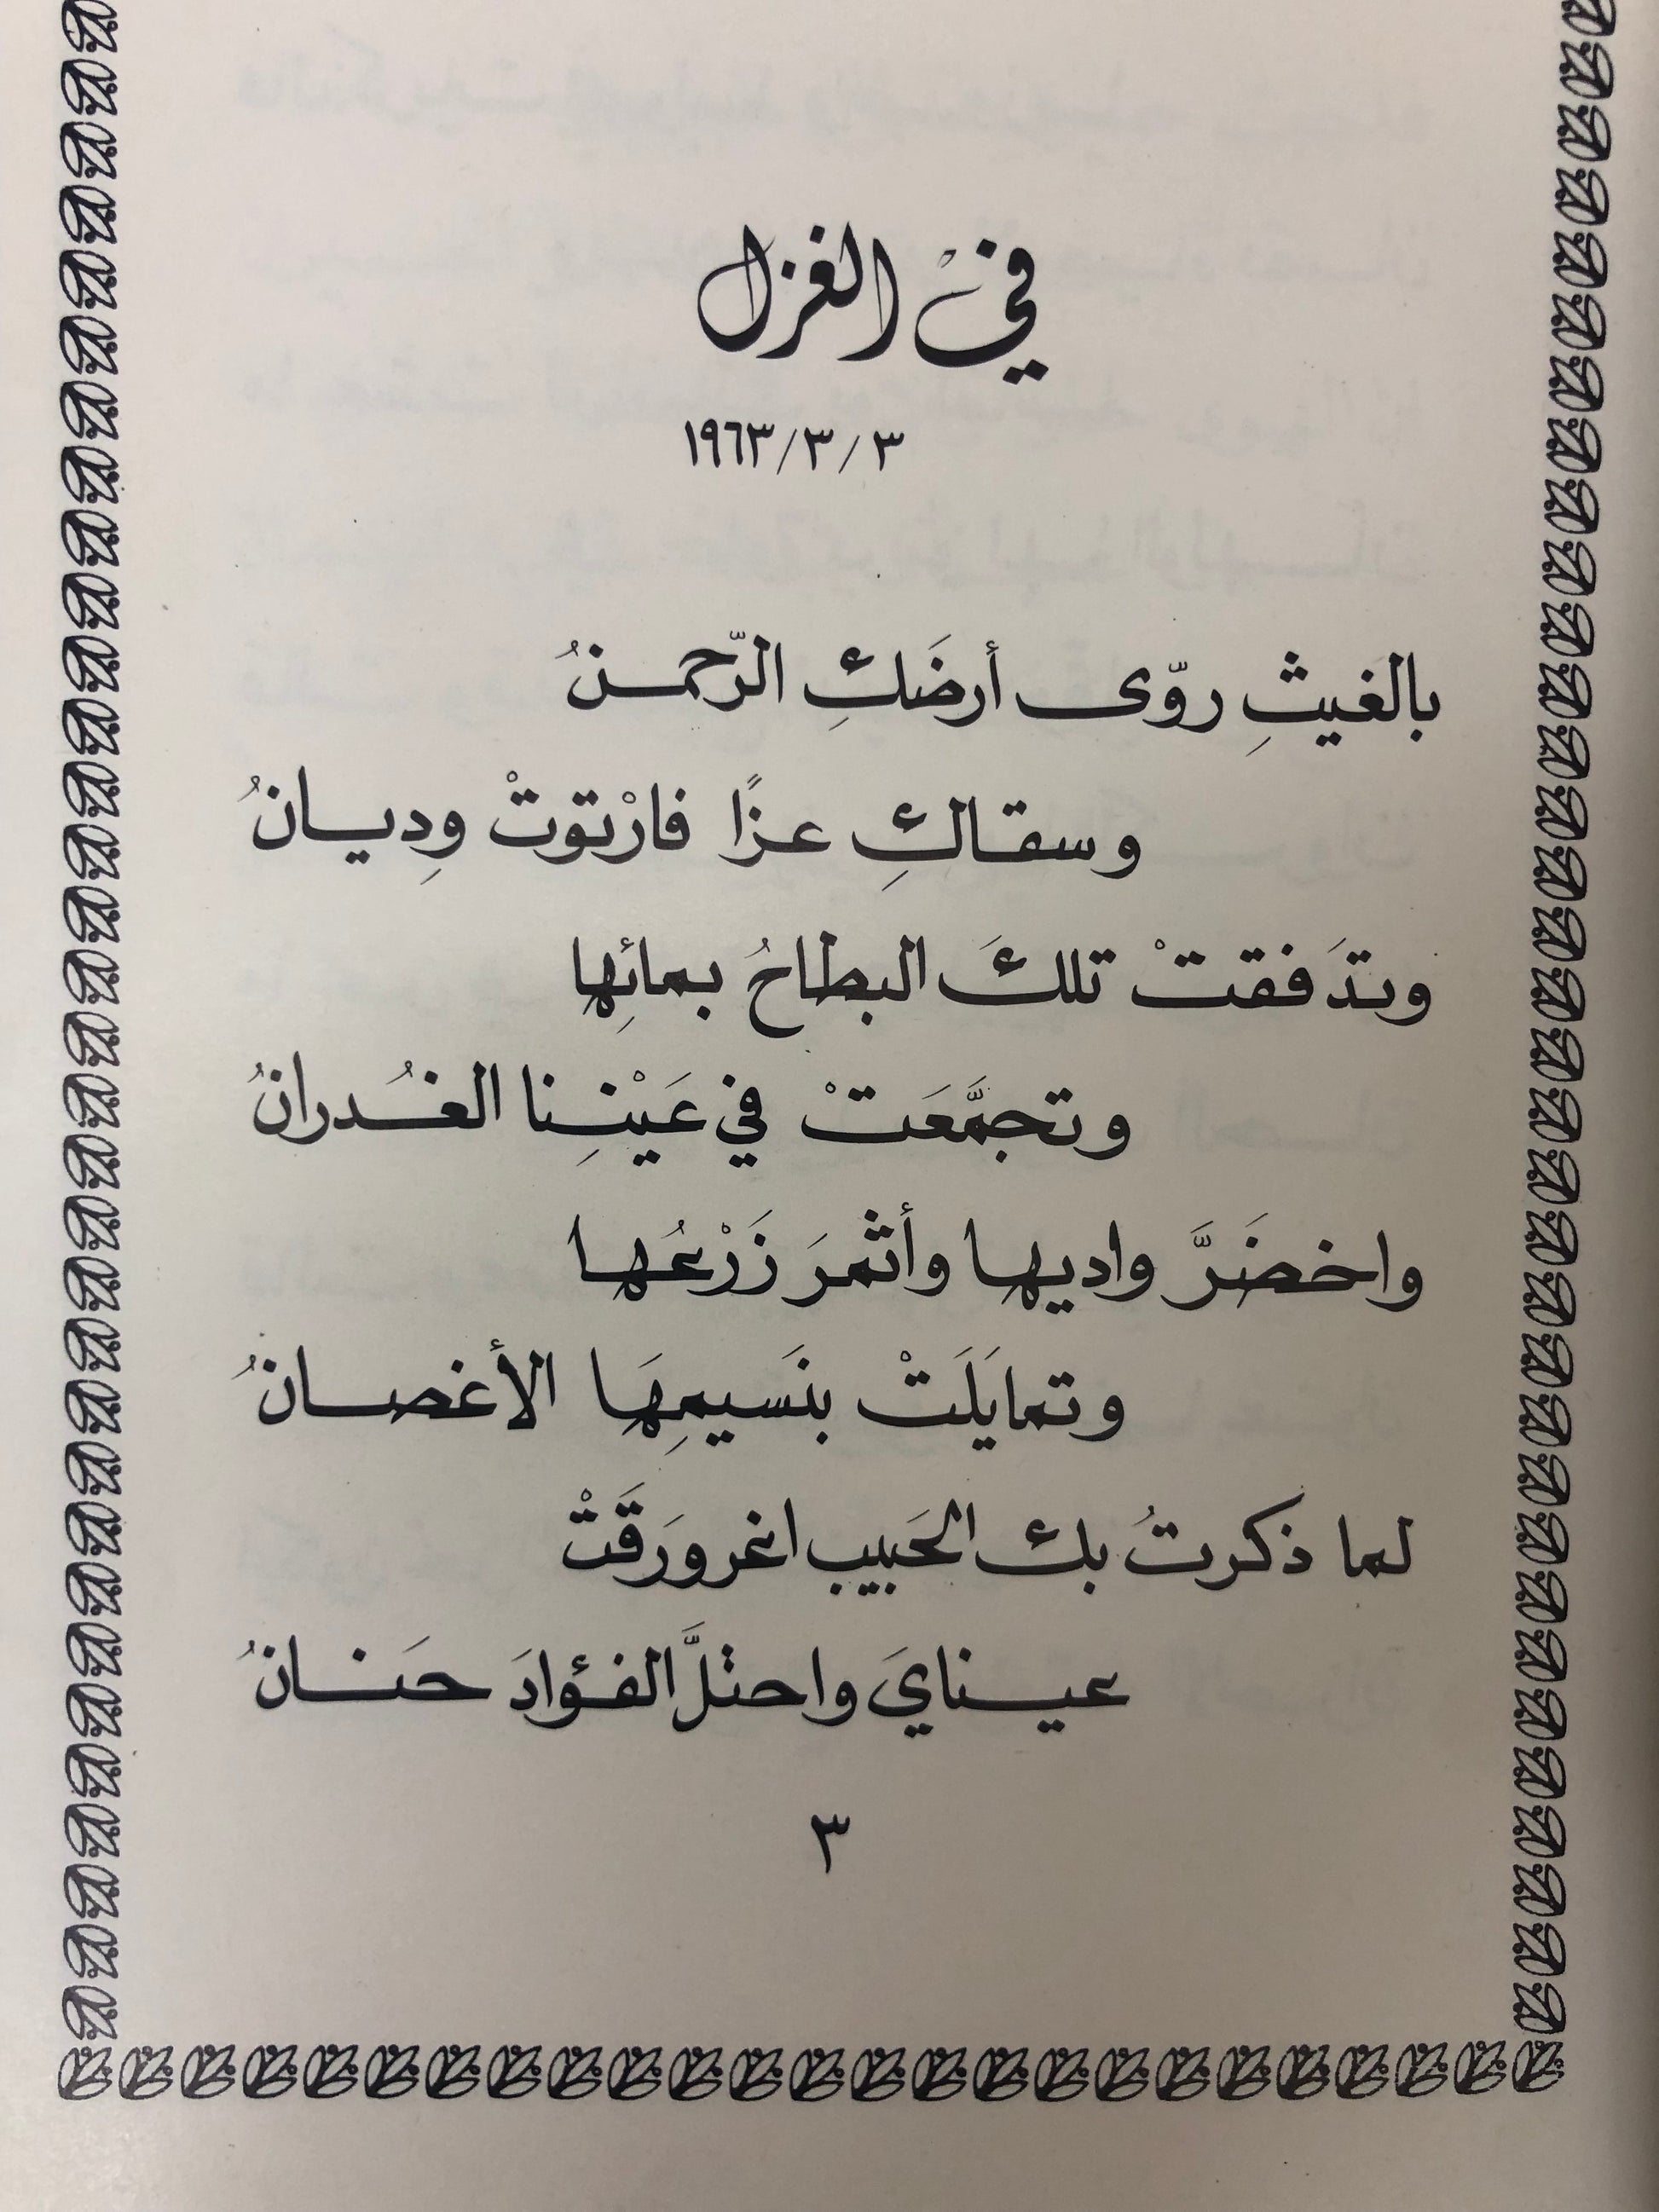 في الغزل
٣/٣/١٩٦٣
بالغيثِ روّى أرضَكِ الرّحمنُ
وسقاكِ عزًا فارْتوتْ وِديانُ
وتدَفقتْ تلكَ البطاحُ بمائِها
وتجمَّعَتْ في عَيْنِنا الغُدرانُ
واخضَرَّ واديها وأثمرَ زَرْعُها
وتمايَلَتْ بنَسيمِهَا الأغصانُ
لما ذكرتُ بك الحَبيب اغرورَقَتْ
عينايَ واحتلَّ الفؤادَ حَنانُ
٣